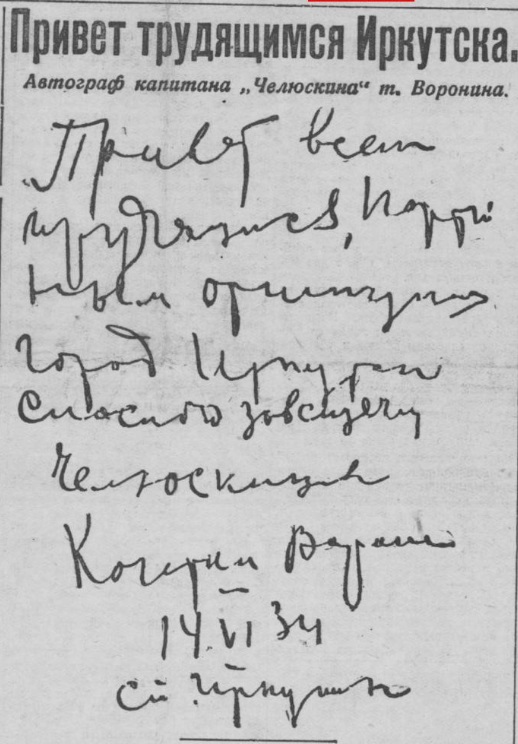 Привет трудящимся Иркутска.
Автограф капитана „Челюскина“ т. Воронина.
Привет всем
трудящися, Парти
ным
город Иркутск
Спасибо за встречу
Челюскинцев
Капитан Воронин
14 VI 34
ст. Иркутск